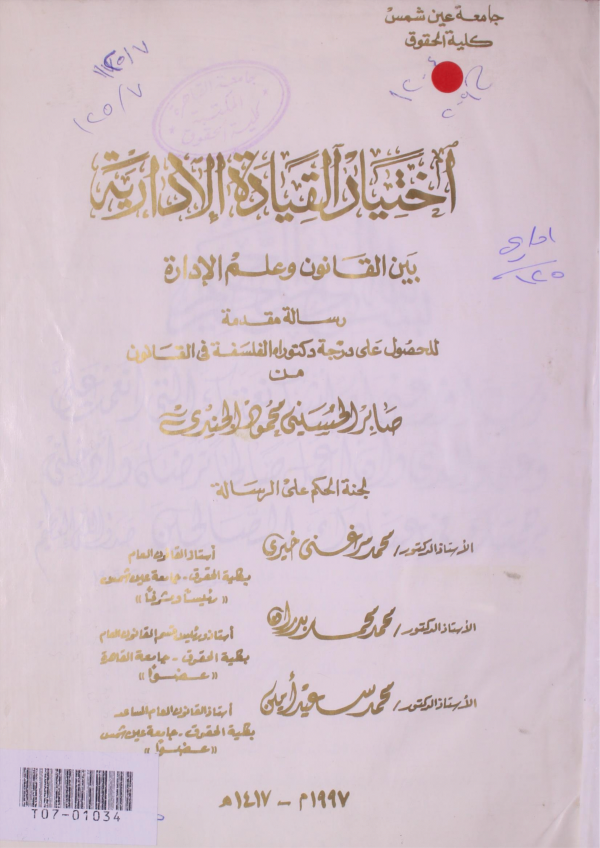 جامعة عين شمس
كلية الحقوق
١٢٥/٧
١٢٥/٧
إختيار القيادة الإدارية
ادارى
١٢٥
بين القانون وعلم الإدارة
رسالة مقدمة
للحصول على درجة دكتوراه الفلسفة فى القانون
من
صابر الحسينى محمود الجندى
لجنة الحكم على الرسالة
الأستاذ الدكتور/ محمد مرغنى خيرى
أستاذ القانون العام
بكلية الحقوق - جامعة عين شمس
«رئيسًا ومشرفًا»
الأستاذ الدكتور/ محمد محمد بدران
أستاذ ورئيس قسم القانون العام
بكلية الحقوق - جامعة القاهرة
«عضوًا»
الأستاذ الدكتور/ محمد سعيد أمين
أستاذ القانون العام المساعد
بكلية الحقوق - جامعة عين شمس
«عضوًا»
١٩٩٧م - ١٤١٧هـ
T07-01034